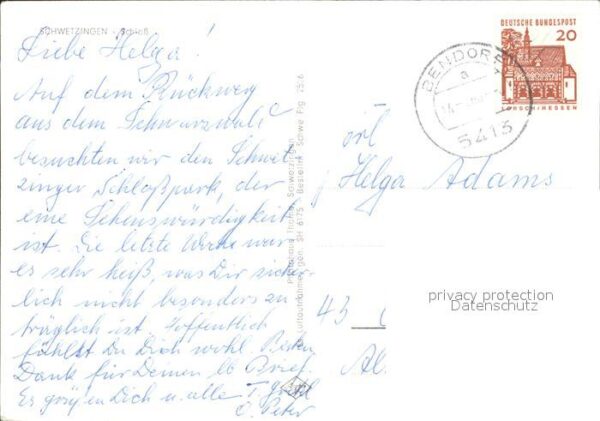 SCHWETZINGEN - Schloß
Liebe Helga!
Auf dem Rückweg
aus dem Schwarzwald
besuchten wir den Schwet
zinger Schloßpark, der
eine Sehenswürdigkeit
ist. Die letzte Woche war
es sehr heiß, was Dir sicher-
lich nicht besonders zu
träglich ist. Hoffentlich
fühlst Du Dich wohl. Besten
Dank für Deinen lb Brief.
Es grüßen Dich u. alle T.
O. Peter
Schwetzingen
Luftaufnahmen gen. SH 6175 Bestellnr. Schwe Fig 25/6
DEUTSCHE BUNDESPOST
20
LORSCH/HESSEN
BENDORF
a
5413
Frl
Helga Adams
43
Al
privacy protection
Datenschutz